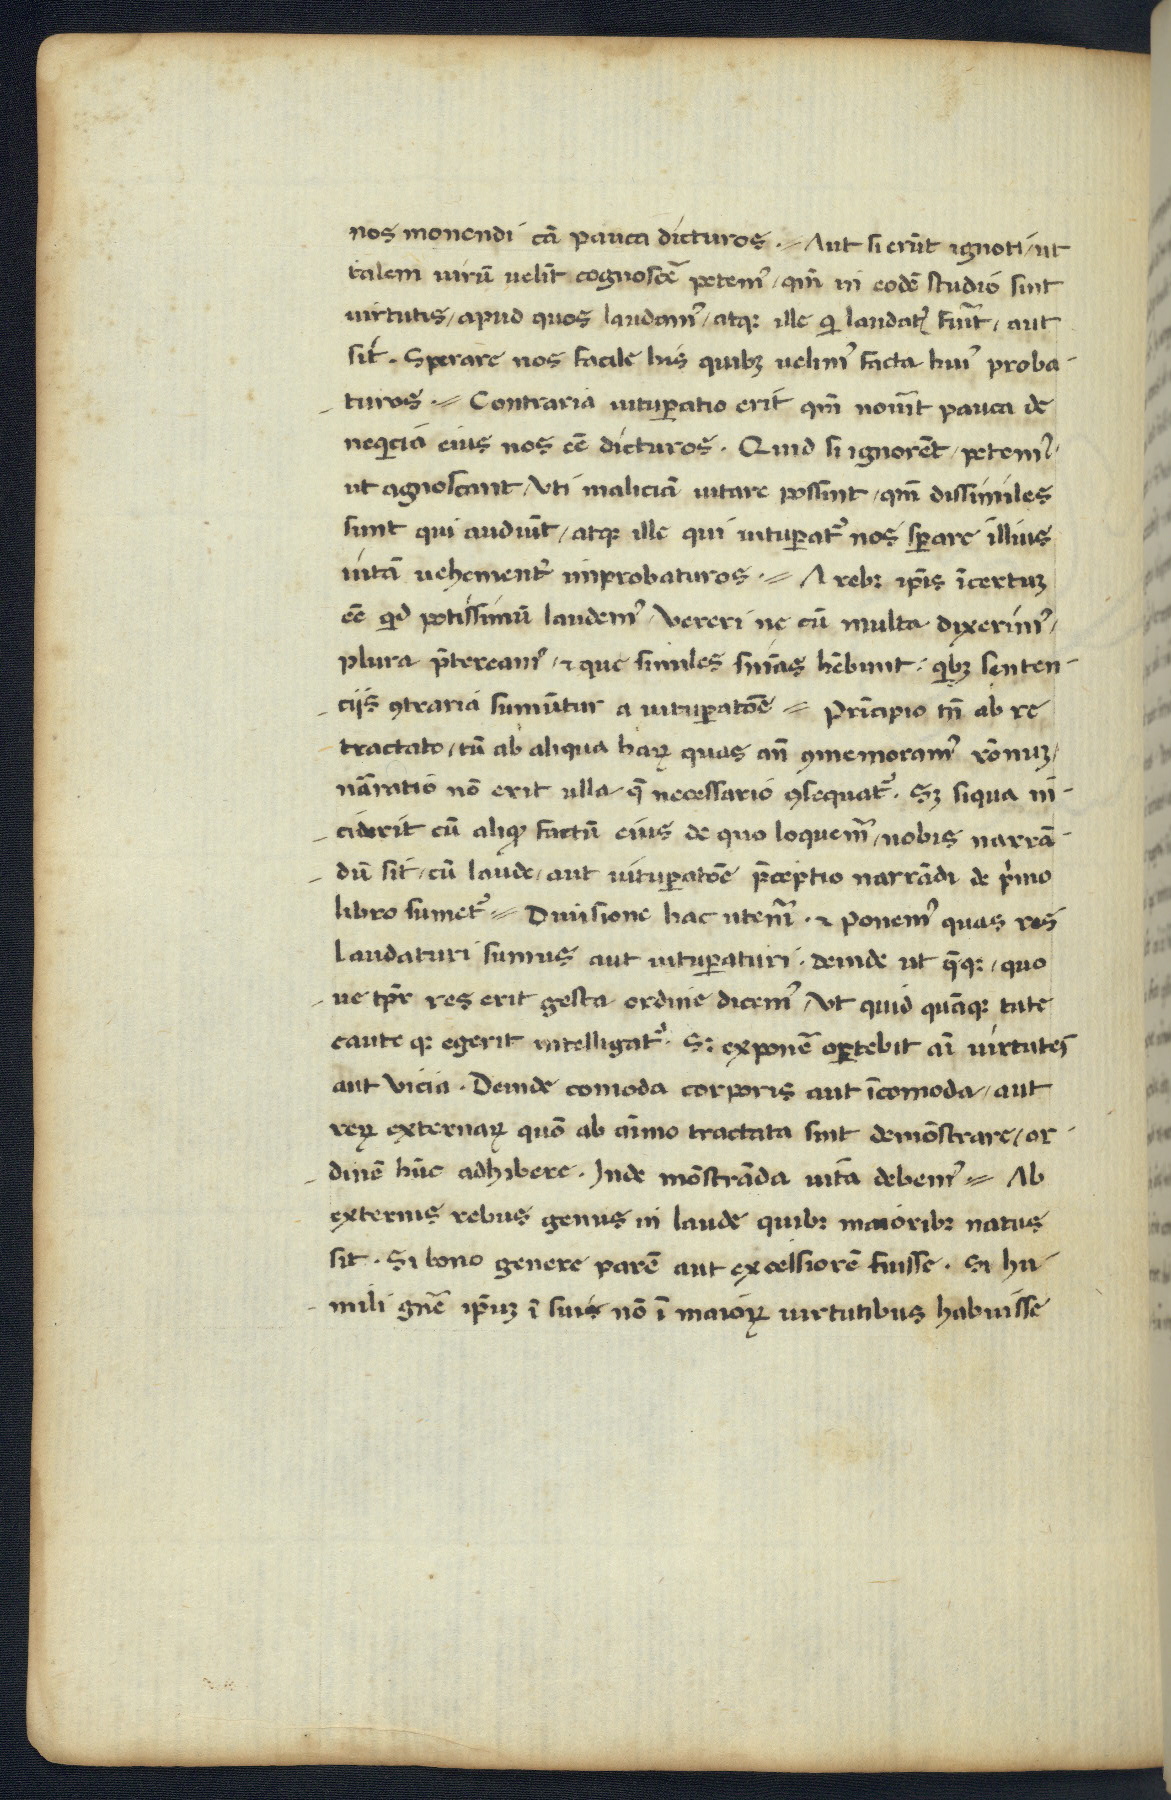 nos monendi cā pauca dicturos · Aut si erūt ignoti / ut
talem uirū uelīt cognoscē petem⁹ / qm̄ in eodē studio sint
uirtutis / apud quos laudam⁹ / atq; ille q̄ laudat᷑ fuīt / aut
sit᷑ . Sperare nos facile his quib; uelim⁹ facta hui⁹ proba-
turos · Contraria uituꝑatio erit qm̄ nouīt pauca de
neq̄cia eius nos eē dicturos . Quid si ignorēt / petem⁹ /
ut agnoscant / Vti maliciā uitare possint / qm̄ dissimiles
sunt qui audiūt / atq; ille qui uituꝑat᷑ nos sꝑare illius
uitā uehement᷑ improbaturos · A reb; ip̄is īcertuꝫ
eē qͥd potissimū laudem⁹ / Vereri ne cū multa dixerim⁹ /
plura p̄teream⁹ / ⁊ que similes sn̄ias hēbunt . qͥbꝫ senten-
ciis ꝯtraria sumūtur a uituꝑatōē Prīcipio tn̄ ab re
tractato / tū ab aliqua haꝝ quas an̄ ꝯmemoram⁹ rōnuꝫ /
nārratio nō erit ulla q̄ necessario ꝯsequat᷑ . Sꝫ siqua in-
ciderit cū aliqͦ factū eius de quo loquem̄ / nobis narrā-
dū sit / cū laude / aut uituꝑatōē p̄ceptio narrādi de pͥmo
libro sumet᷑ Diuisione hac utem̄ . ⁊ Ponem⁹ quas res
laudaturi sumus aut uituꝑaturi . deinde ut q̄q; / quo
ue tp̄r res erit gesta ordine dicem⁹ / Vt quid quāq; tute
caute q; egerit intelligat᷑ . S; exponē oꝑtebit ai᷑ uirtutes
aut uicia . Deinde comoda corporis aut īcomoda / aut
reꝝ externaꝝ quō ab aīmo tractata sint demōstrare / or-
dinē hūc adhibere . Inde mōstrāda uitā debem⁹ Ab
externis rebus genus in laude quib; maiorib; natus
sit . Si bono genere parē aut excelsiorē fuisse . Si hu-
mili gn̄e ip̄uꝫ ī suis nō ī maioꝝ uirtutibus habuisse